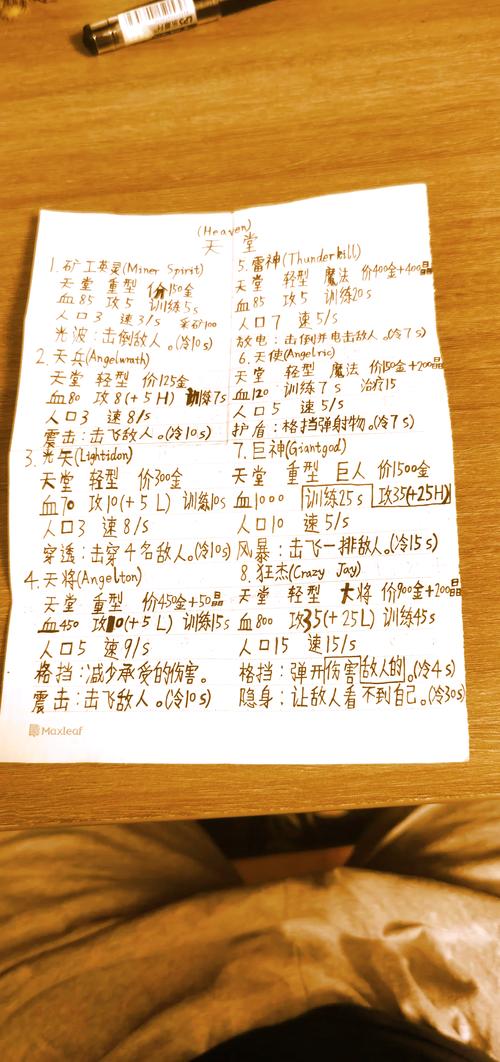 (Heaven)
天 堂
1. 矿工英灵(Miner Spirit)
天堂 重型 价150金
血85 攻5 训练5s
人口3 速3/s 采矿100
光波:击倒敌人。(冷10s)
2. 天兵(Angelwrath)
天堂 轻型 价125金
血80 攻8(+5H) 训练7s
人口3 速8/s
震击:击飞敌人。(冷10s)
3. 光矢(Lightidon)
天堂 轻型 价300金
血70 攻10(+5L) 训练10s
人口3 速8/s
穿透:击穿4名敌人。(冷10s)
4. 天将(Angelton)
天堂 重型 价450金+50晶
血450 攻10(+5L) 训练15s
人口5 速9/s
格挡:减少承受的伤害。
震击:击飞敌人。(冷10s)
5. 雷神(Thunderkill)
天堂 轻型 魔法 价400金+400晶
血85 攻5 训练20s
人口7 速5/s
放电:击倒并电击敌人。(冷7s)
6. 天使(Angelric)
天堂 轻型 魔法 价150金+200晶
血120 训练7s 治疗15
人口5 速5/s
护盾:格挡弹射物。(冷7s)
7. 巨神(Giantgod)
天堂 重型 巨人 价1500金
血1000 训练25s 攻35(+25H)
人口10 速5/s
风暴:击飞一排敌人。(冷15s)
8. 狂杰(Crazy Jay)
天堂 轻型 大将 价900金+200晶
血800 攻35(+25L) 训练45s
人口15 速15/s
格挡:弹开伤害敌人的。(冷4s)
隐身:让敌人看不到自己。(冷30s)
Maxleaf